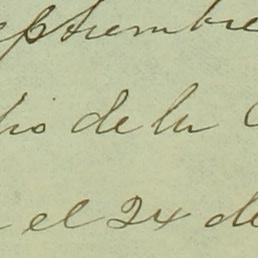 eptiembre
dio de la C
el 24 de